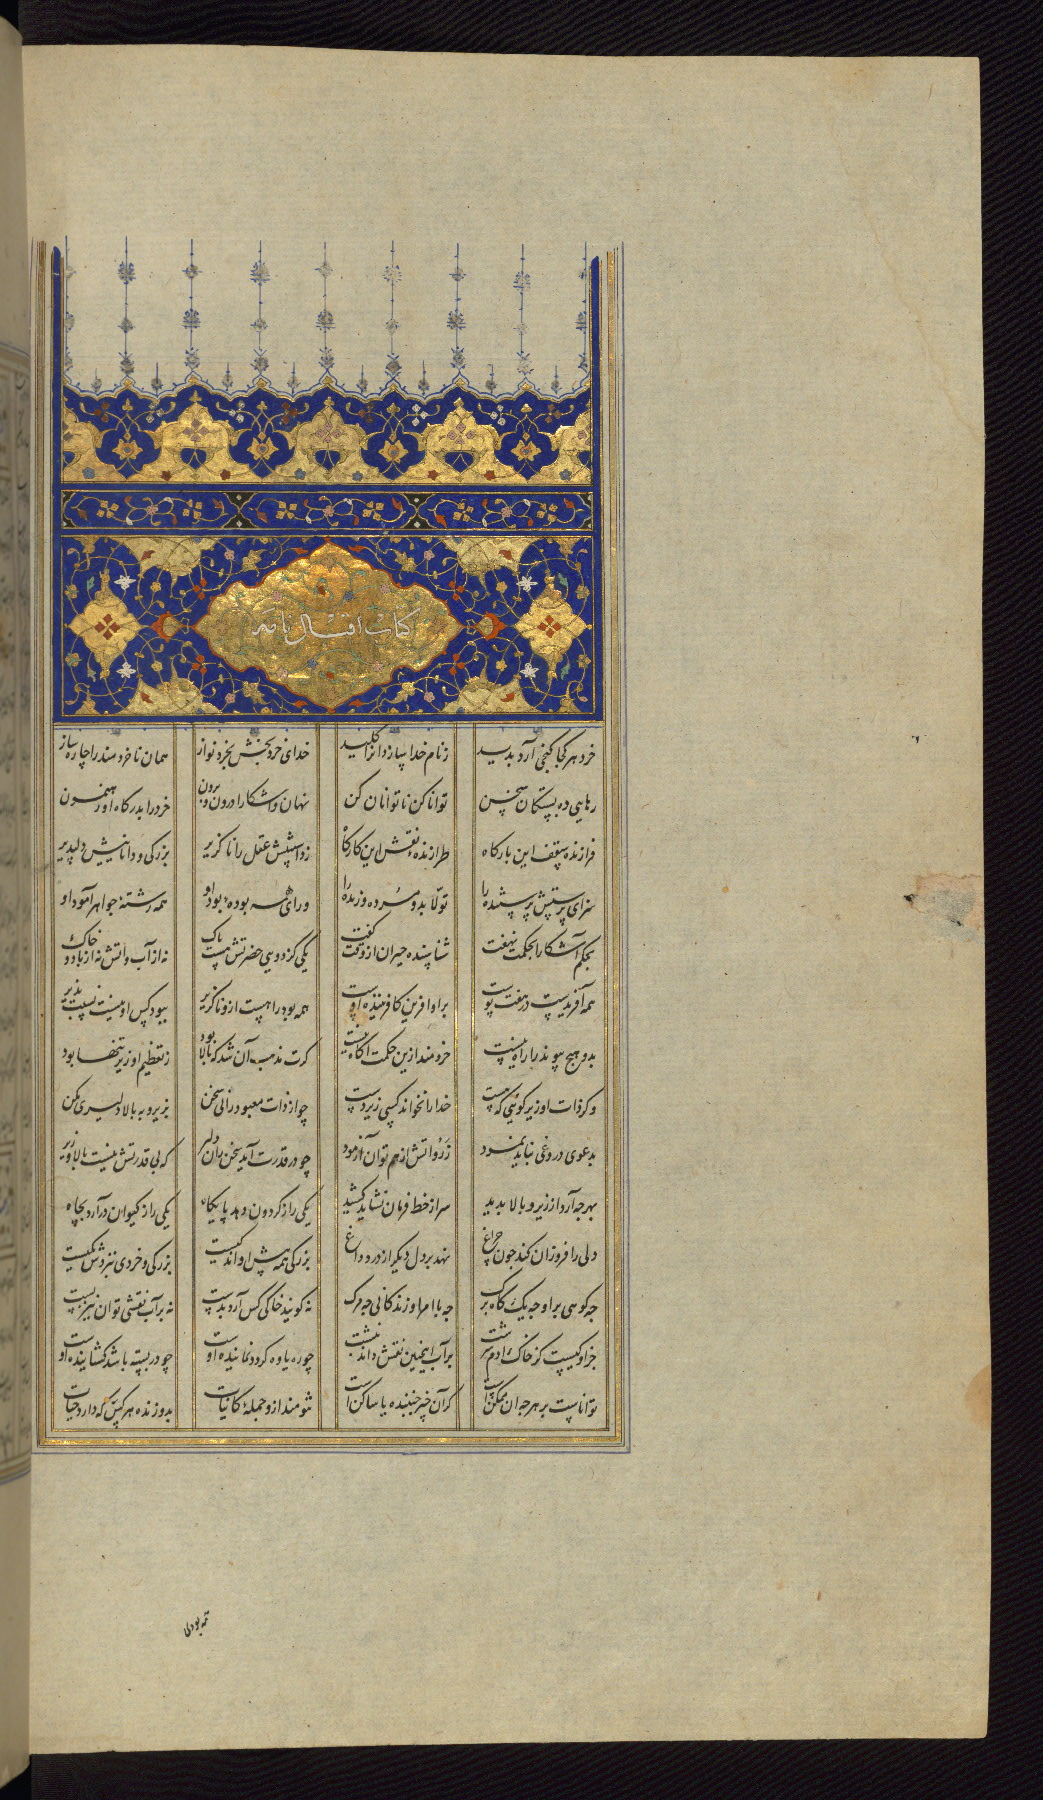 کتاب اقبال نامه
خرد هر کجا کنجی آرد بدید ز نام خدا سازد آنرا کلید خدای خرد بخش بخرد نواز همان ناخردمند را چاره ساز
رهایی ده بستکان سخن توانا کن ناتوانان کن نهان و اشکارا درون و برون خرد را بدرکاه او رهنمون
فرازنده سقف این بارکاه طرازنده نقش این کارکاه ز دانستنش عقل را ناکزیر بزرکی و داناییش دلپذیر
سزای پرستش پرستنده را تولّا بدو مرده و زنده را ورای همه بودهٔ بود او همه رشتهٔ جواهر آمود او
بحکم آشکارا بحکمت نهفت شناسنده حیران ازو وقت کفت یکی کز دویی حضرتش هست باک نه از آب و آتش نه از باد و خاک
همه آفریدست در هفت پوست بر او افرین کافریننده اوست همه بود را هست ازو ناکزیر ببود کس او نیست نسبت بذیر
بدو هیچ پوینده را راه نیست خردمند ازین حکمت آکاه نیست کرت مذهب آن شد که بالا بود ز تعظیم او زیر تنها بود
وکر ذات او زیر کویی که هست خدا را نخواند کسی زیردست چو از ذات معبود رانی سخن بزیر و ببالا دلیری مکن
بدعوی دروغی نباید نمود زر و اتش از هم توان آزمود چو در قدرت آید سخن زان دلیر که بی قدرتش نیست بالا و زیر
بهرچه آرد از زیر و بالا بدید سر از خط فرمان نشاید کشید یکی را ز کردون دهد پایکاه یکی را ز کیوان درآرد بچاه
دلی را فروزان کند چون چراغ نهد بر دل دیکر از درد داغ بزرکی همه پیش او اندکیست بزرکی و خردی بنزدش یکیست
چه کوهی بر او چه یک کاه برک چه با امر او زندکانی چه مرک نه کویند خاکی کس آرد بدست نه بر آب نقشی توان نیز بست
جز او کیست کز خاک آدم سرشت بر آب اینچنین نقش داند نبشت چو ره یاوه کردد نماینده اوست چو در بسته باشد کشاینده اوست
تواناست بر هرچه آن ممکنست کر آن چیز جنبنده یا ساکن است تنومند ازو جملهٔ کاینات بدو زنده هر کس که دارد حیات
همه بودی